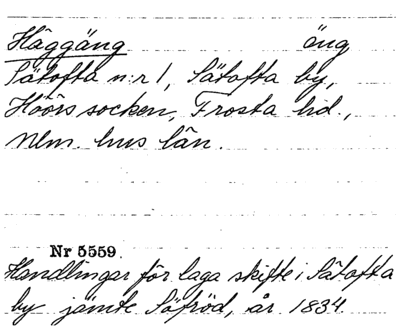 Häggäng äng
Sätofta n:r 1, Sätofta by,
Höörs socken, Frosta hd.,
Mlm. hus län.
Nr 5559.
Handlingar för laga skifte i Sätofta
by jämte Söfröd, år 1834